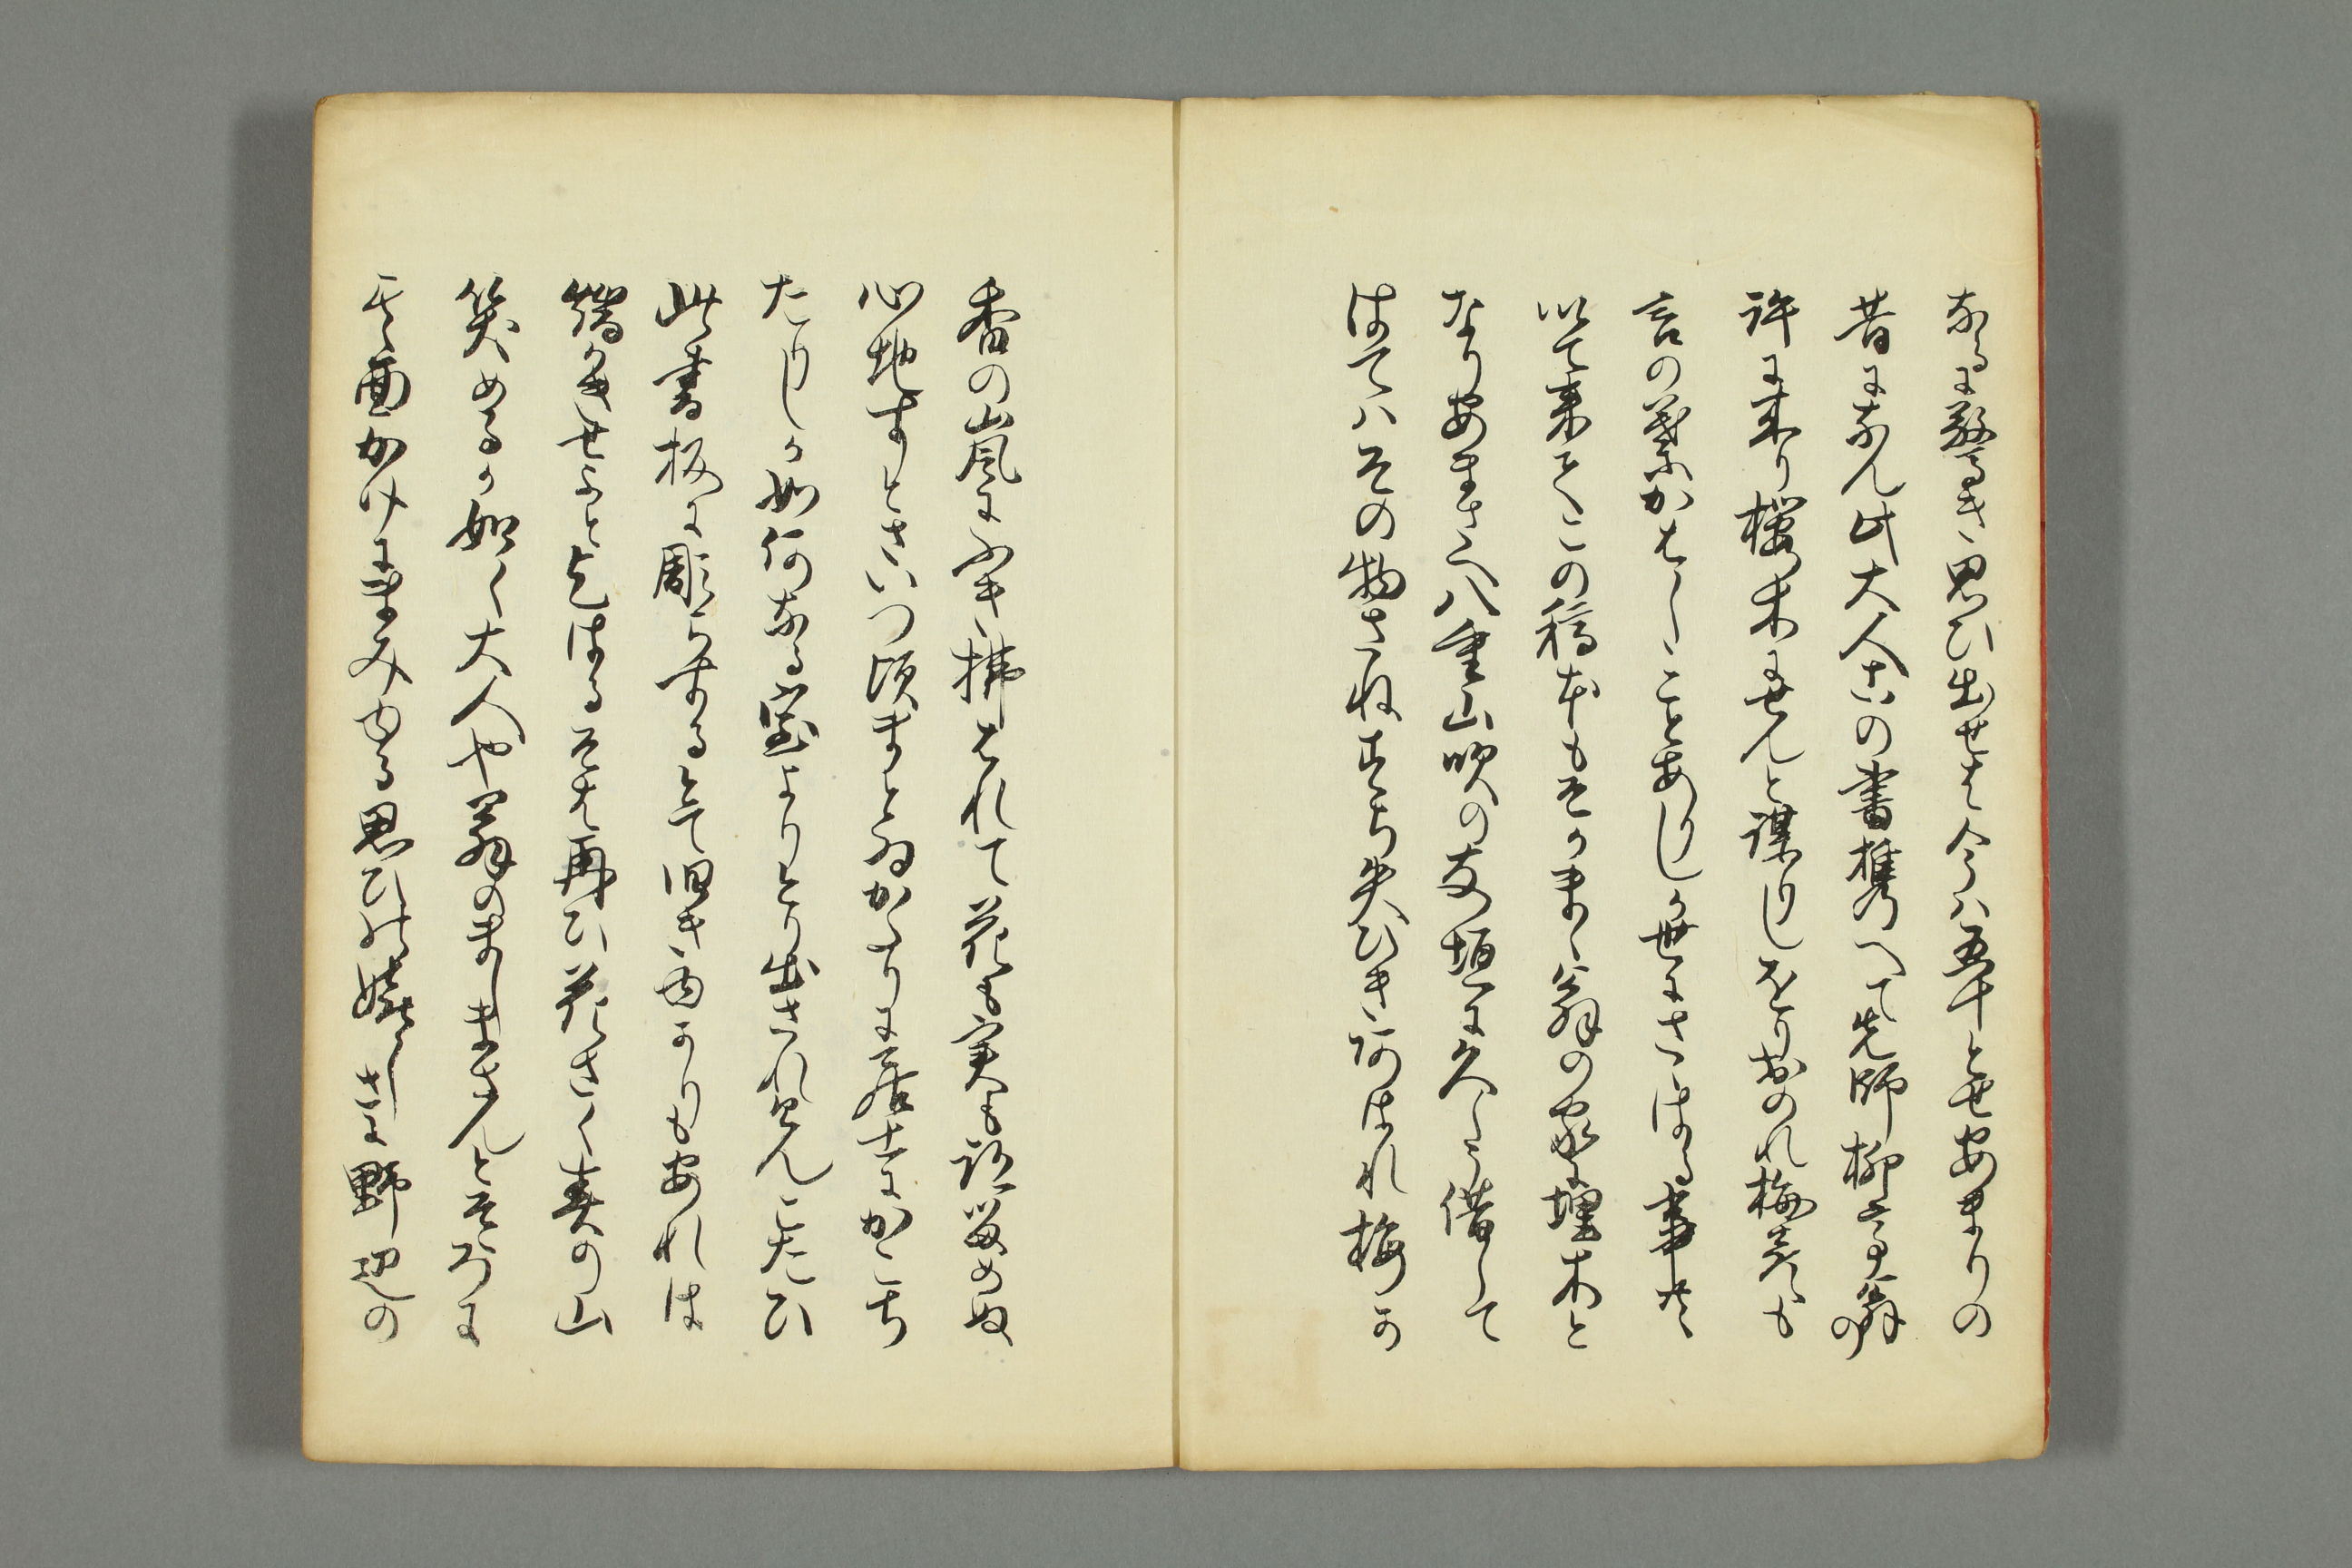 なるに驚き思ひ出せは今ハ五十とせあまりの
昔になん此大人この書携へて先師柳亭翁の
許に来り桜木にせんと謀りしをりおのれ梅彦も
言の葉かはしゝことありしか世にさはる事共
以て来てこの稿本もそかまゝ翁の家に埋木と
なりあまさへ八重山吹の友垣に久しう借して
はてハその物さねすら失ひきあはれ梅か
香の嵐にふき払はれて花も実も認留めぬ
心地すとさいつ頃まとゐかたりに居士にかこち
たりしか如何なる窓よりとり出されけんこたひ
此書板に彫らするとて旧き由かりもあれは
端かきせよと乞はるそは再ひ花さく春の山
笑めるか如く大人や翁のましまさんとそゞろに
其面かけにまみゆる思ひの嬉しさに野辺の